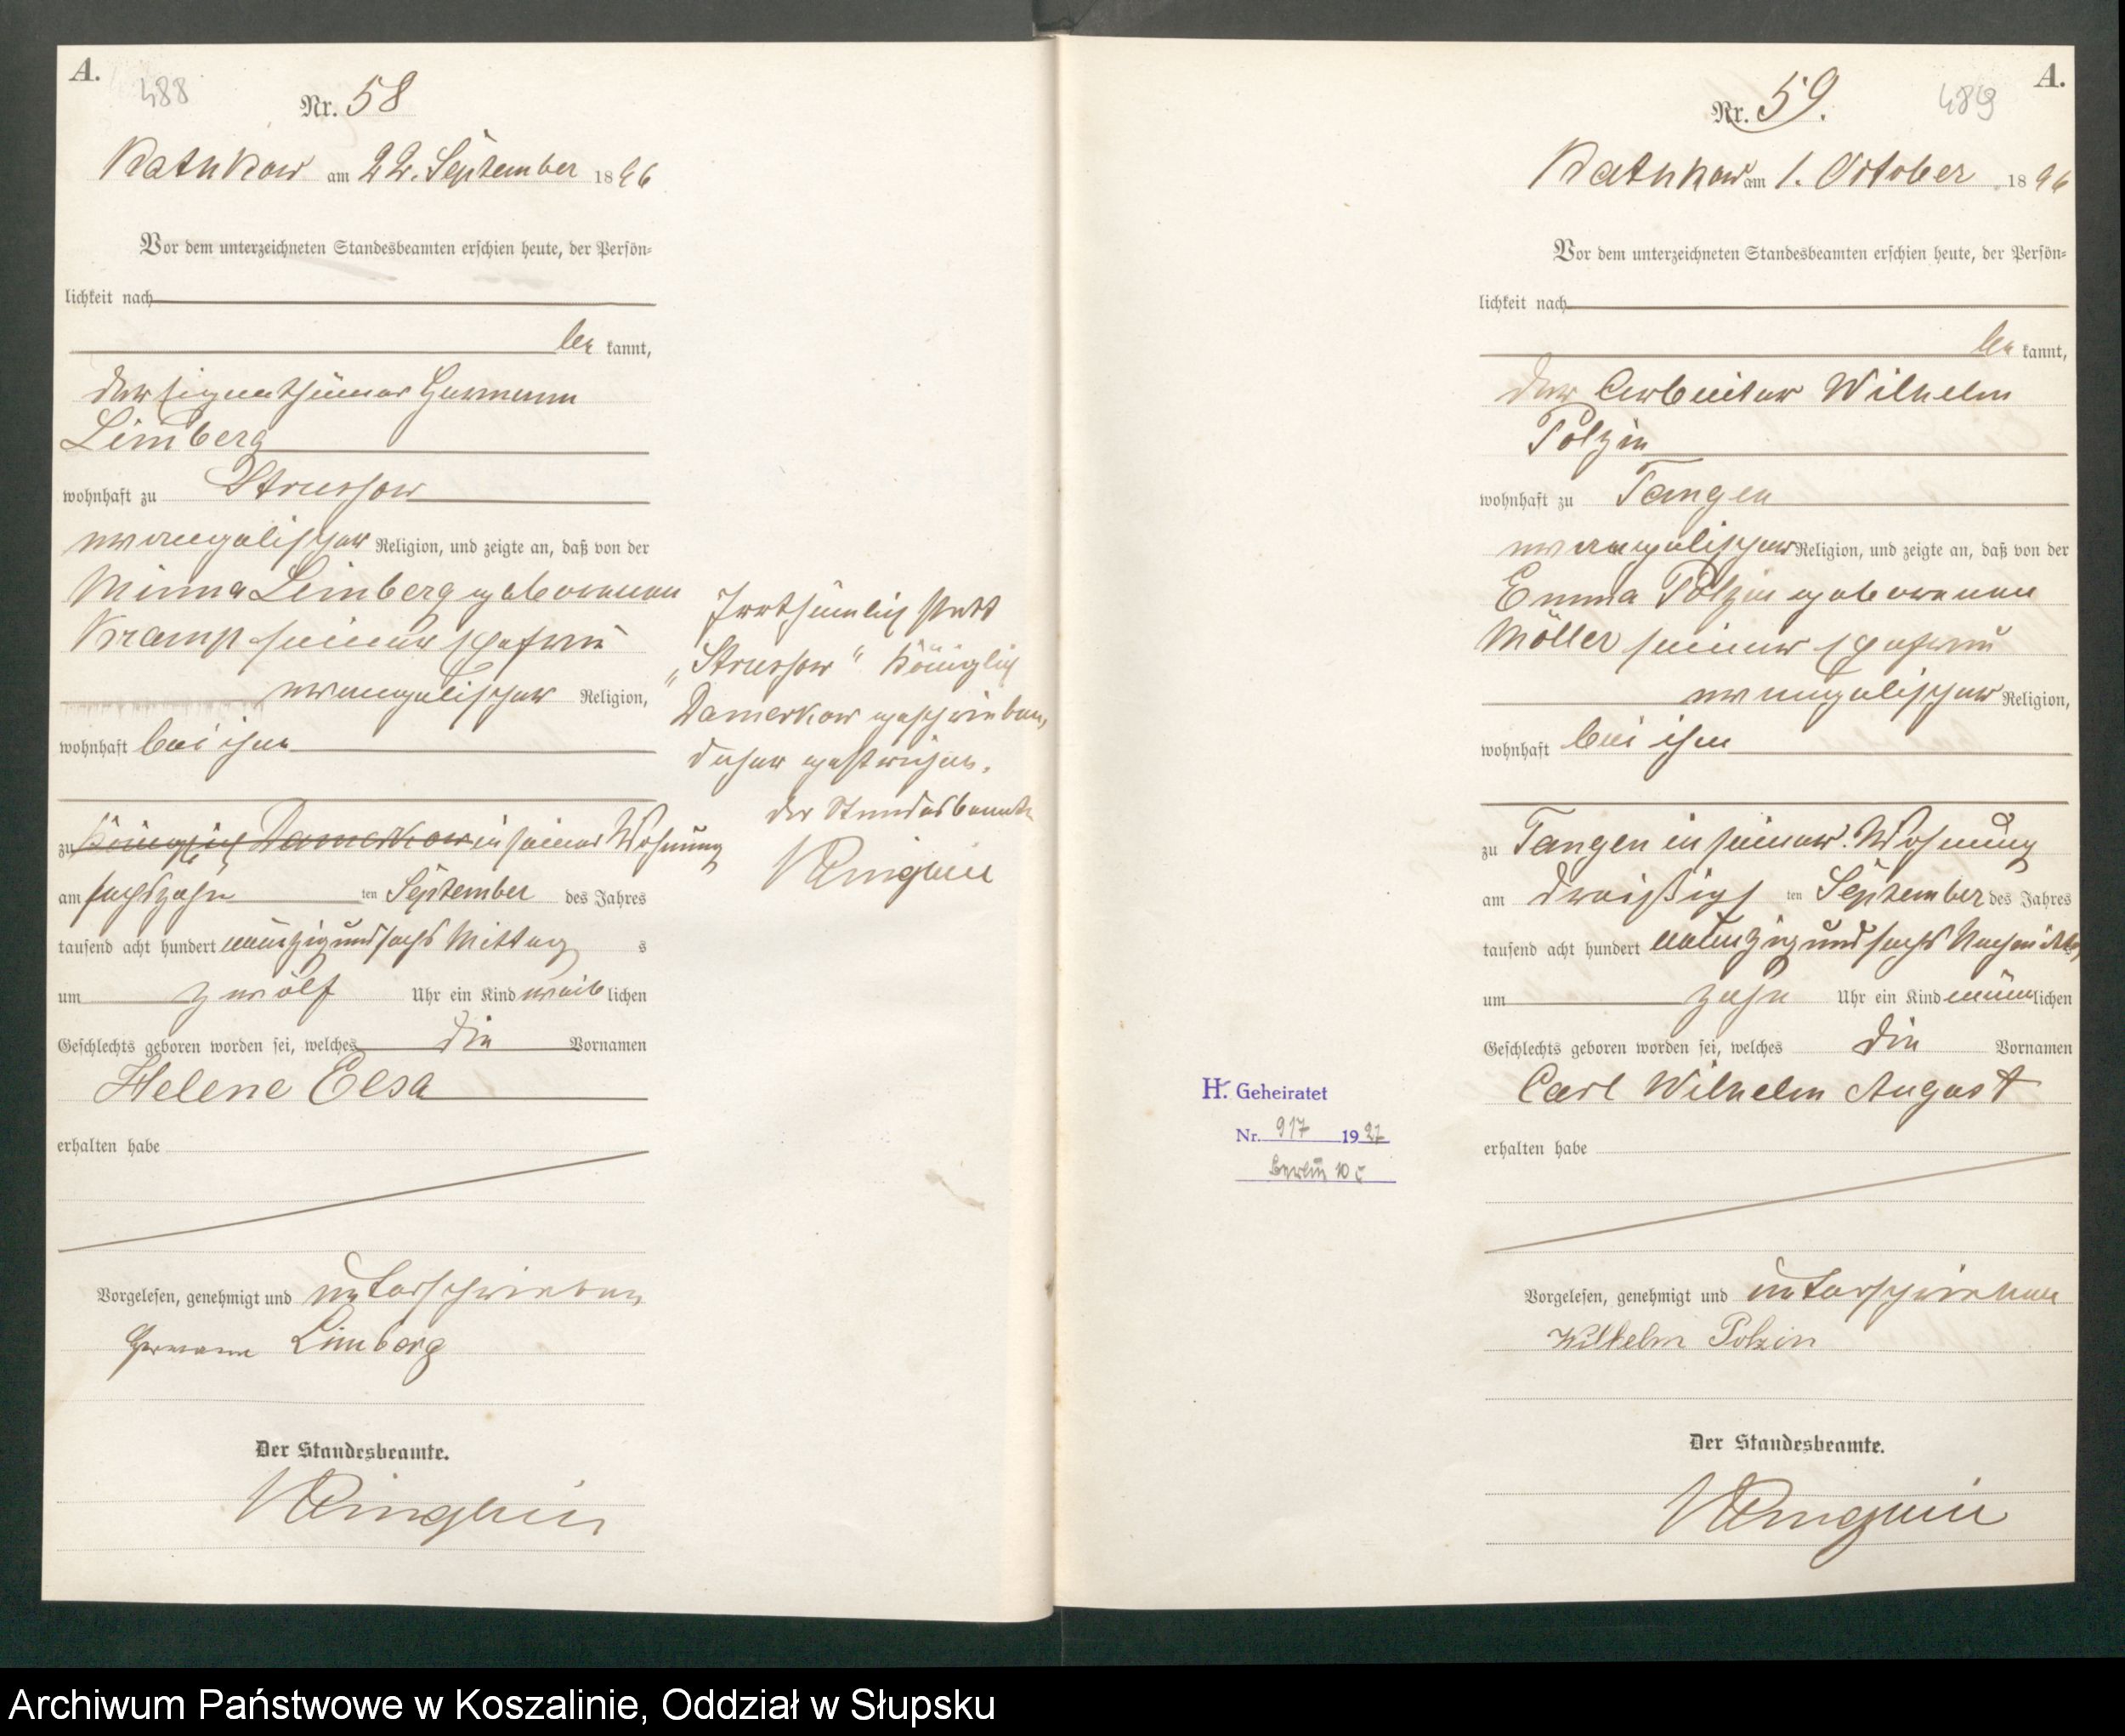 A.
488
Nr. 58
Kathkow am 22. September 1896
Vor dem unterzeichneten Standesbeamten erschien heute, der Persön-
lichkeit nach
be kannt,
der Eigenthümer Hermann
Limberg
wohnhaft zu Strussow
evangelischer Religion, und zeigte an, daß von der
Minna Limberg geborenen
Kramp seiner Ehefrau
evangelischer Religion,
wohnhaft bei ihm
zu Königlich Damerkow in seiner Wohnung
am sechszehn ten September des Jahres
tausend acht hundert neunzig und sechs Mittag s
um zwölf Uhr ein Kind weib lichen
Geschlechts geboren worden sei, welches die Vornamen
Helene Elsa
erhalten habe
Vorgelesen, genehmigt und unterschrieben
Hermann Limberg
Der Standesbeamte.
Irrthümlich statt
„Strussow“ Königlich
Damerkow geschrieben,
daher gestrichen.
Der Standesbeamte
A.
489
Nr. 59.
Kathkow am 1. October 1896
Vor dem unterzeichneten Standesbeamten erschien heute, der Persön-
lichkeit nach
be kannt,
der Arbeiter Wilhelm
Polzin
wohnhaft zu Tangen
evangelischer Religion, und zeigte an, daß von der
Emma Polzin geborenen
Möller seiner Ehefrau
evangelischer Religion,
wohnhaft bei ihm
zu Tangen in seiner Wohnung
am dreißigs ten September des Jahres
tausend acht hundert neunzig und sechs Nachmittags
um zehn Uhr ein Kind männ lichen
Geschlechts geboren worden sei, welches die Vornamen
Carl Wilhelm August
erhalten habe
Vorgelesen, genehmigt und unterschrieben
Wilhelm Polzin
Der Standesbeamte.
H. Geheiratet
Nr. 917 1927
Berlin 10 c
Archiwum Państwowe w Koszalinie, Oddział w Słupsku